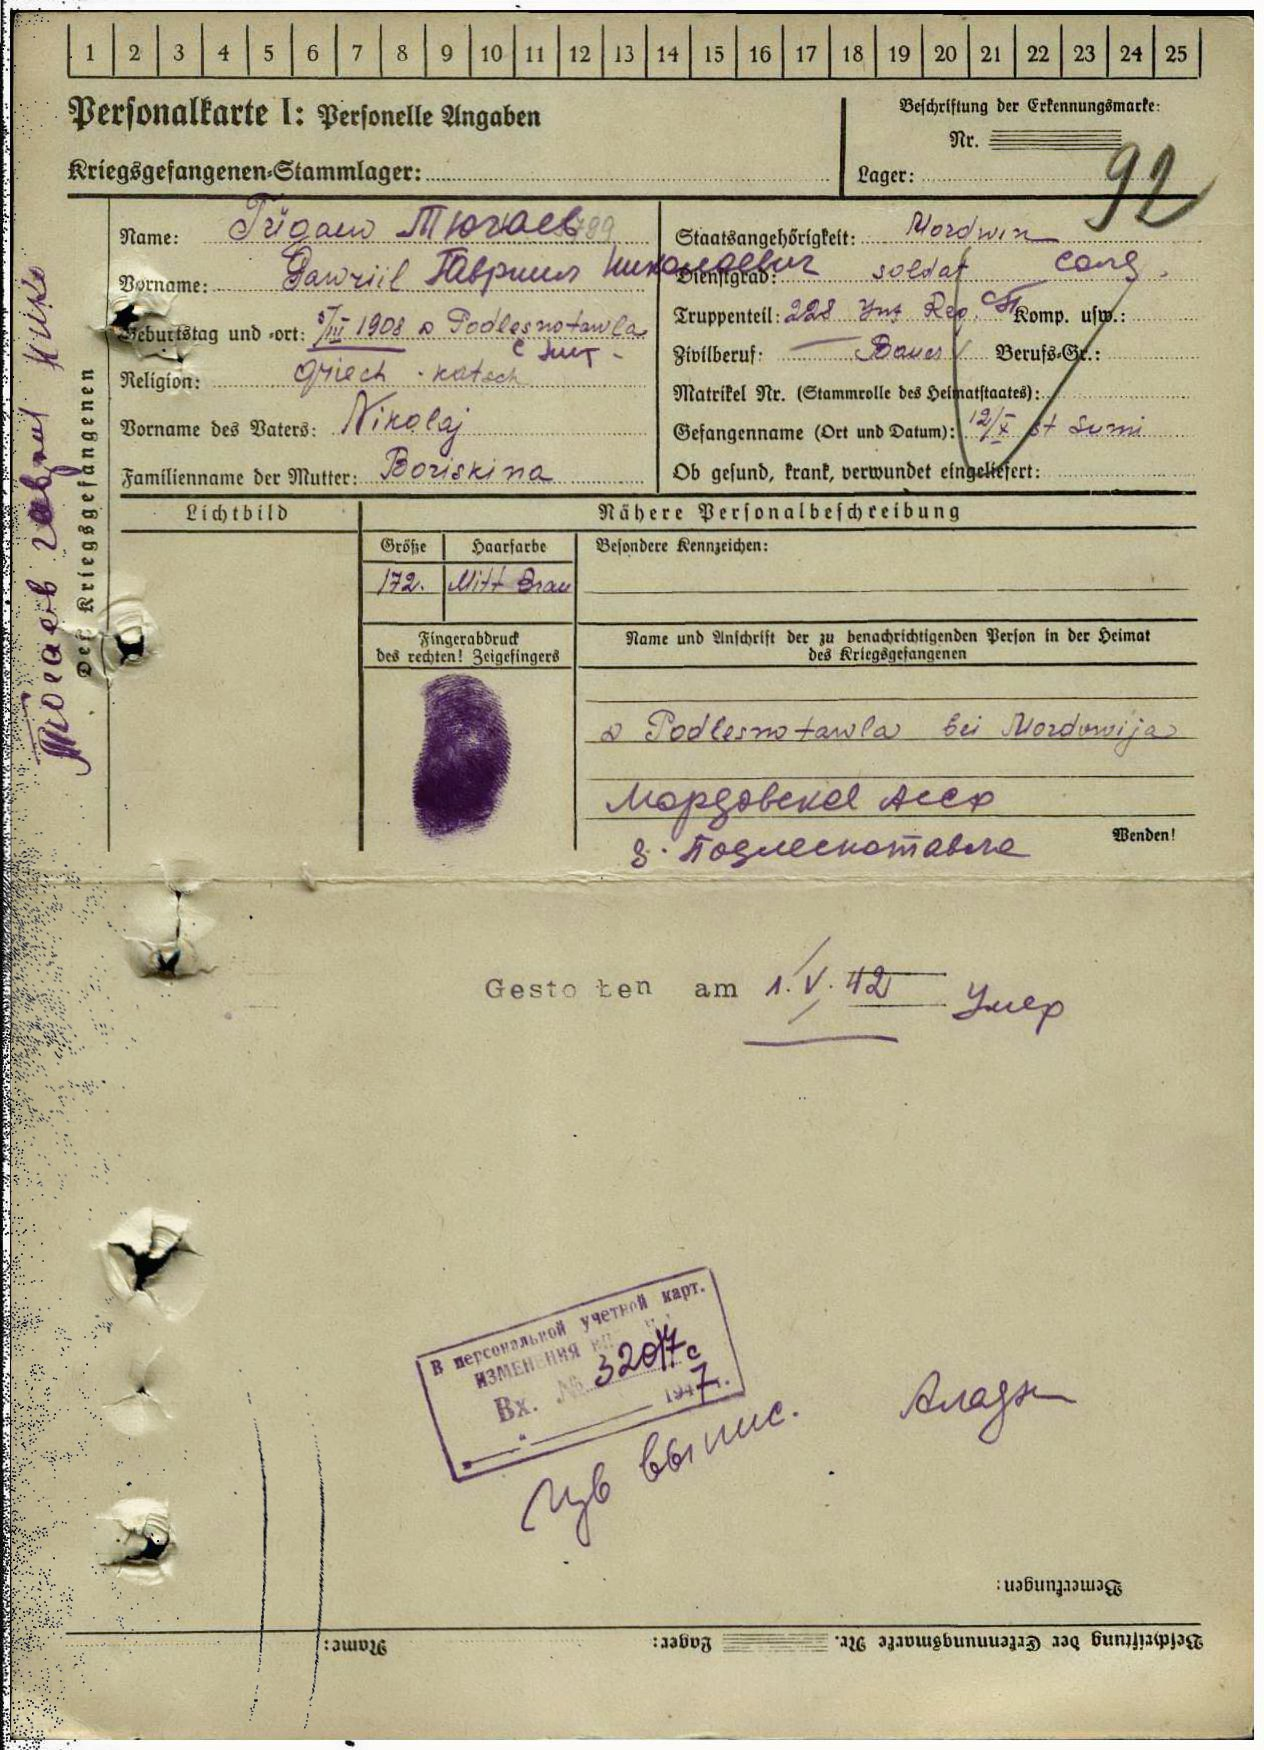 1 2 3 4 5 6 7 8 9 10 11 12 13 14 15 16 17 18 19 20 21 22 23 24 25
Personalkarte I: Personelle Angaben
Kriegsgefangenen-Stammlager:
Beschriftung der Erkennungsmarke:
Nr.
Lager:
92
Des Kriegsgefangenen
Name: Тючаев
Vorname: Gawriil Гавриил Николаевич
Geburtstag und -ort: 5/III 1908 D Podlesnotawla
Religion: Griech. katoch
Vorname des Vaters: Nikolaj
Familienname der Mutter: Boriskina
Staatsangehörigkeit: Mordwin
Dienstgrad: soldat солд.
Truppenteil: 228 Inf Reg. Komp. usw.:
Zivilberuf: Bauer Berufs-Gr.:
Matrikel Nr. (Stammrolle des Heimatstaates):
Gefangenname (Ort und Datum): 12/X st Sumi
Ob gesund, krank, verwundet eingeliefert:
Lichtbild
Nähere Personalbeschreibung
Größe Haarfarbe Besondere Kennzeichen:
172. Mitt Brau
Fingerabdruck
des rechten! Zeigefingers
Name und Anschrift der zu benachrichtigenden Person in der Heimat
des Kriegsgefangenen
D Podlesnotawla bei Mordowija
Мордовская Асср
д. Подлеснотавла
Wenden!
Gestorben am 1. V. 42 Умер
В персональной учетной карт.
ИЗМЕНЕНИЯ
Вх. № 32017с
1947 г.
Изв выпис.
Bemerkungen:
Beschriftung der Erkennungsmarke Nr. Lager: Name: